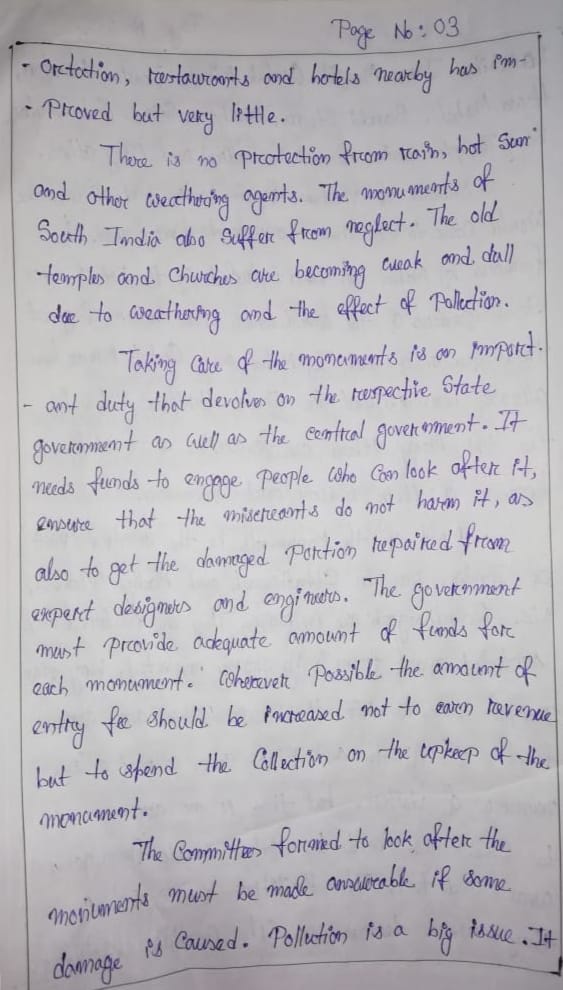 Page No: 03
- ortation, restaurants and hotels nearby has im-
- Proved but very little.
There is no protection from rain, hot Sun
and other weathering agents. The monuments of
South India also Suffer from neglect. The old
temples and Churches are becoming weak and dull
due to weathering and the effect of Pollution.
Taking Care of the monuments is an Import-
- ant duty that devolves on the respective State
government as well as the central government. It
needs funds to engage People who Can look after it,
ensure that the miscreants do not harm it, as
also to get the damaged Portion repaired from
expert designers and engineers. The government
must provide adequate amount of funds for
each monument. Wherever Possible the amount of
entry fee should be increased not to earn revenue
but to spend the Collection on the upkeep of the
monument.
The Committees formed to look after the
monuments must be made answerable if some
damage is Caused. Pollution is a big issue. It